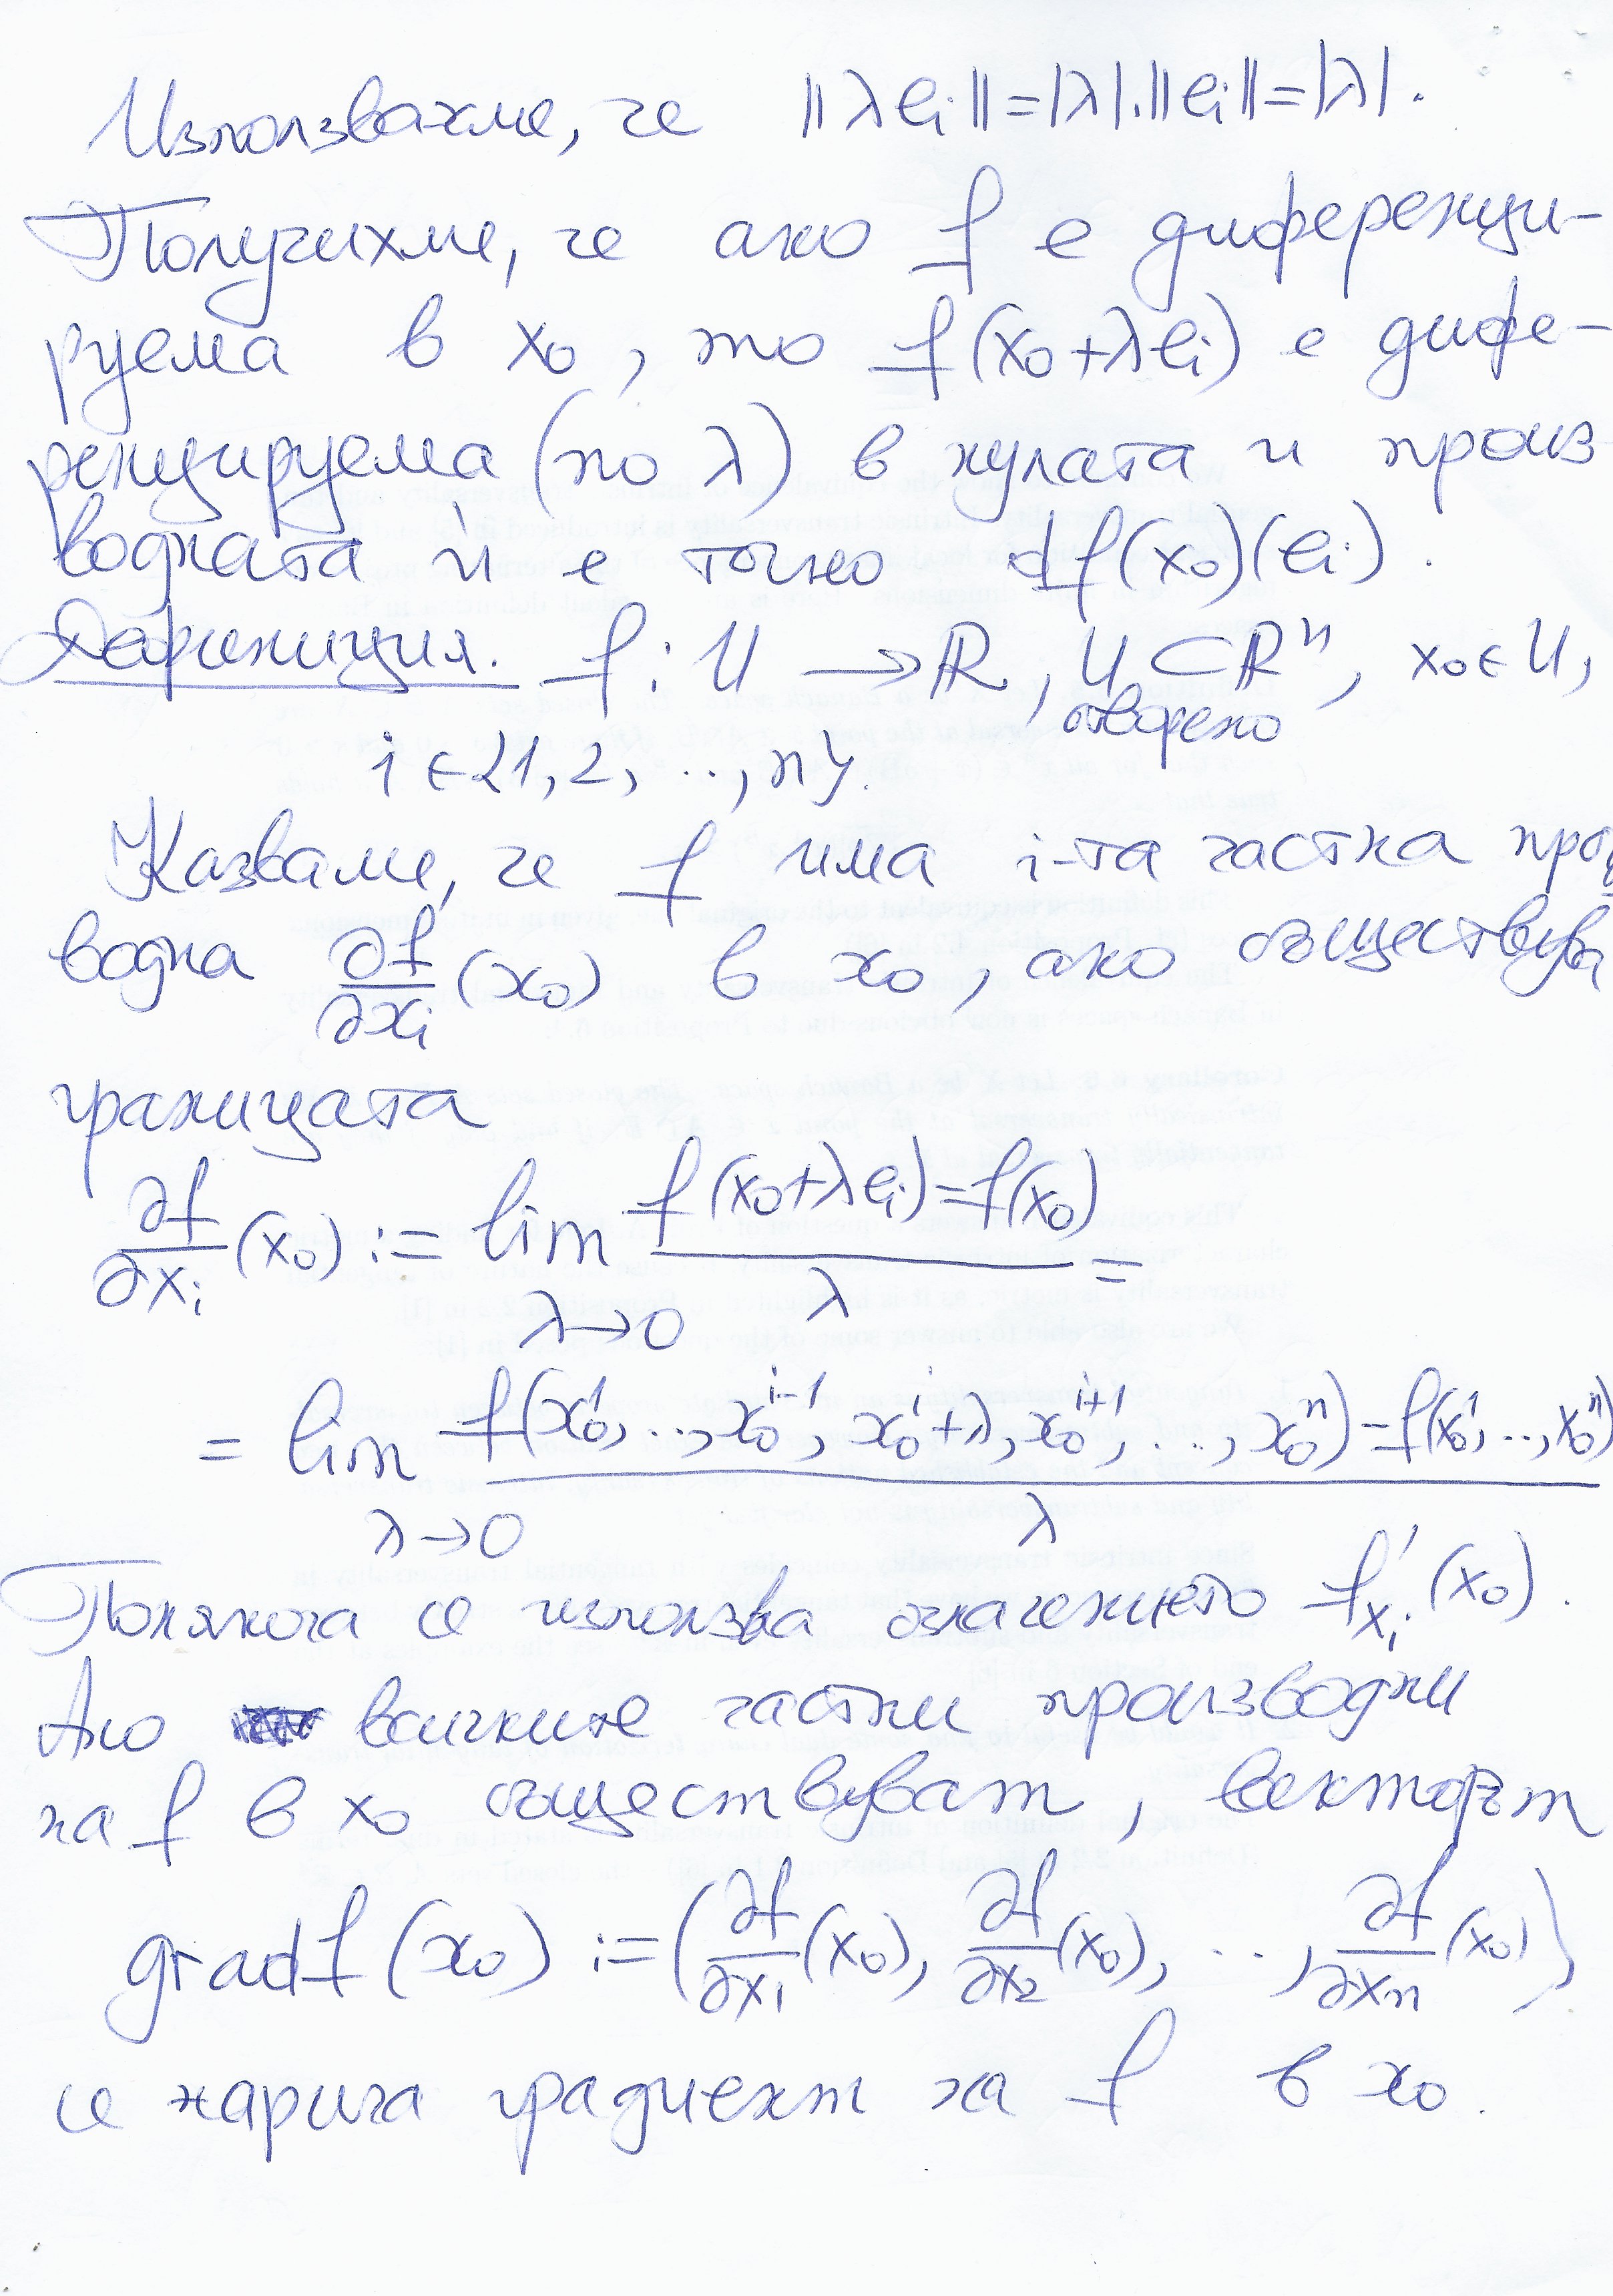 Използвахме, че ||λeᵢ|| = |λ|.||eᵢ|| = |λ|.
Получихме, че ако f е диференци-
руема в x₀, то f(x₀+λeᵢ) е дифе-
ренцируема (по λ) в нулата и произ
водната ѝ е точно df(x₀)(eᵢ).
Дефиниция. f : U → ℝ, U ⊂ ℝⁿ, x₀ ∈ U,
отворено
i ∈ {1, 2, ..., n}.
Казваме, че f има i-та частна прои
водна ∂f/∂xᵢ (x₀) в x₀, ако съществува
границата
∂f/∂xᵢ (x₀) := lim_{λ→0} (f(x₀+λeᵢ) − f(x₀))/λ =
= lim_{λ→0} (f(x₀¹, .., x₀ⁱ⁻¹, x₀ⁱ+λ, x₀ⁱ⁺¹, .., x₀ⁿ) − f(x₀¹, .., x₀ⁿ))/λ
Понякога се използва означението f′ₓᵢ(x₀).
Ако всичките частни производни
на f в x₀ съществуват, векторът
grad f(x₀) := (∂f/∂x₁ (x₀), ∂f/∂x₂ (x₀), ..., ∂f/∂xₙ (x₀))
се нарича градиент на f в x₀.